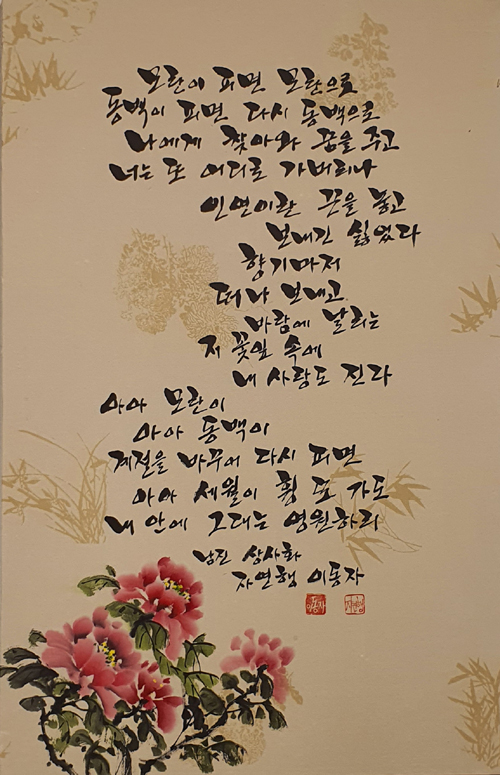 모란이 피면 모란으로
동백이 피면 다시 동백으로
나에게 찾아와 꿈을 주고
너는 또 어디로 가버리나
인연이란 끈을 놓고
보내긴 싫었다
향기마저
떠나 보내고
바람에 날리는
저 꽃잎 속에
내 사랑도 진다
아아 모란이
아아 동백이
계절을 바꾸어 다시 피면
아아 세월이 휭 또 가도
내 안에 그대는 영원하리
남진 상사화
자연행 이동자